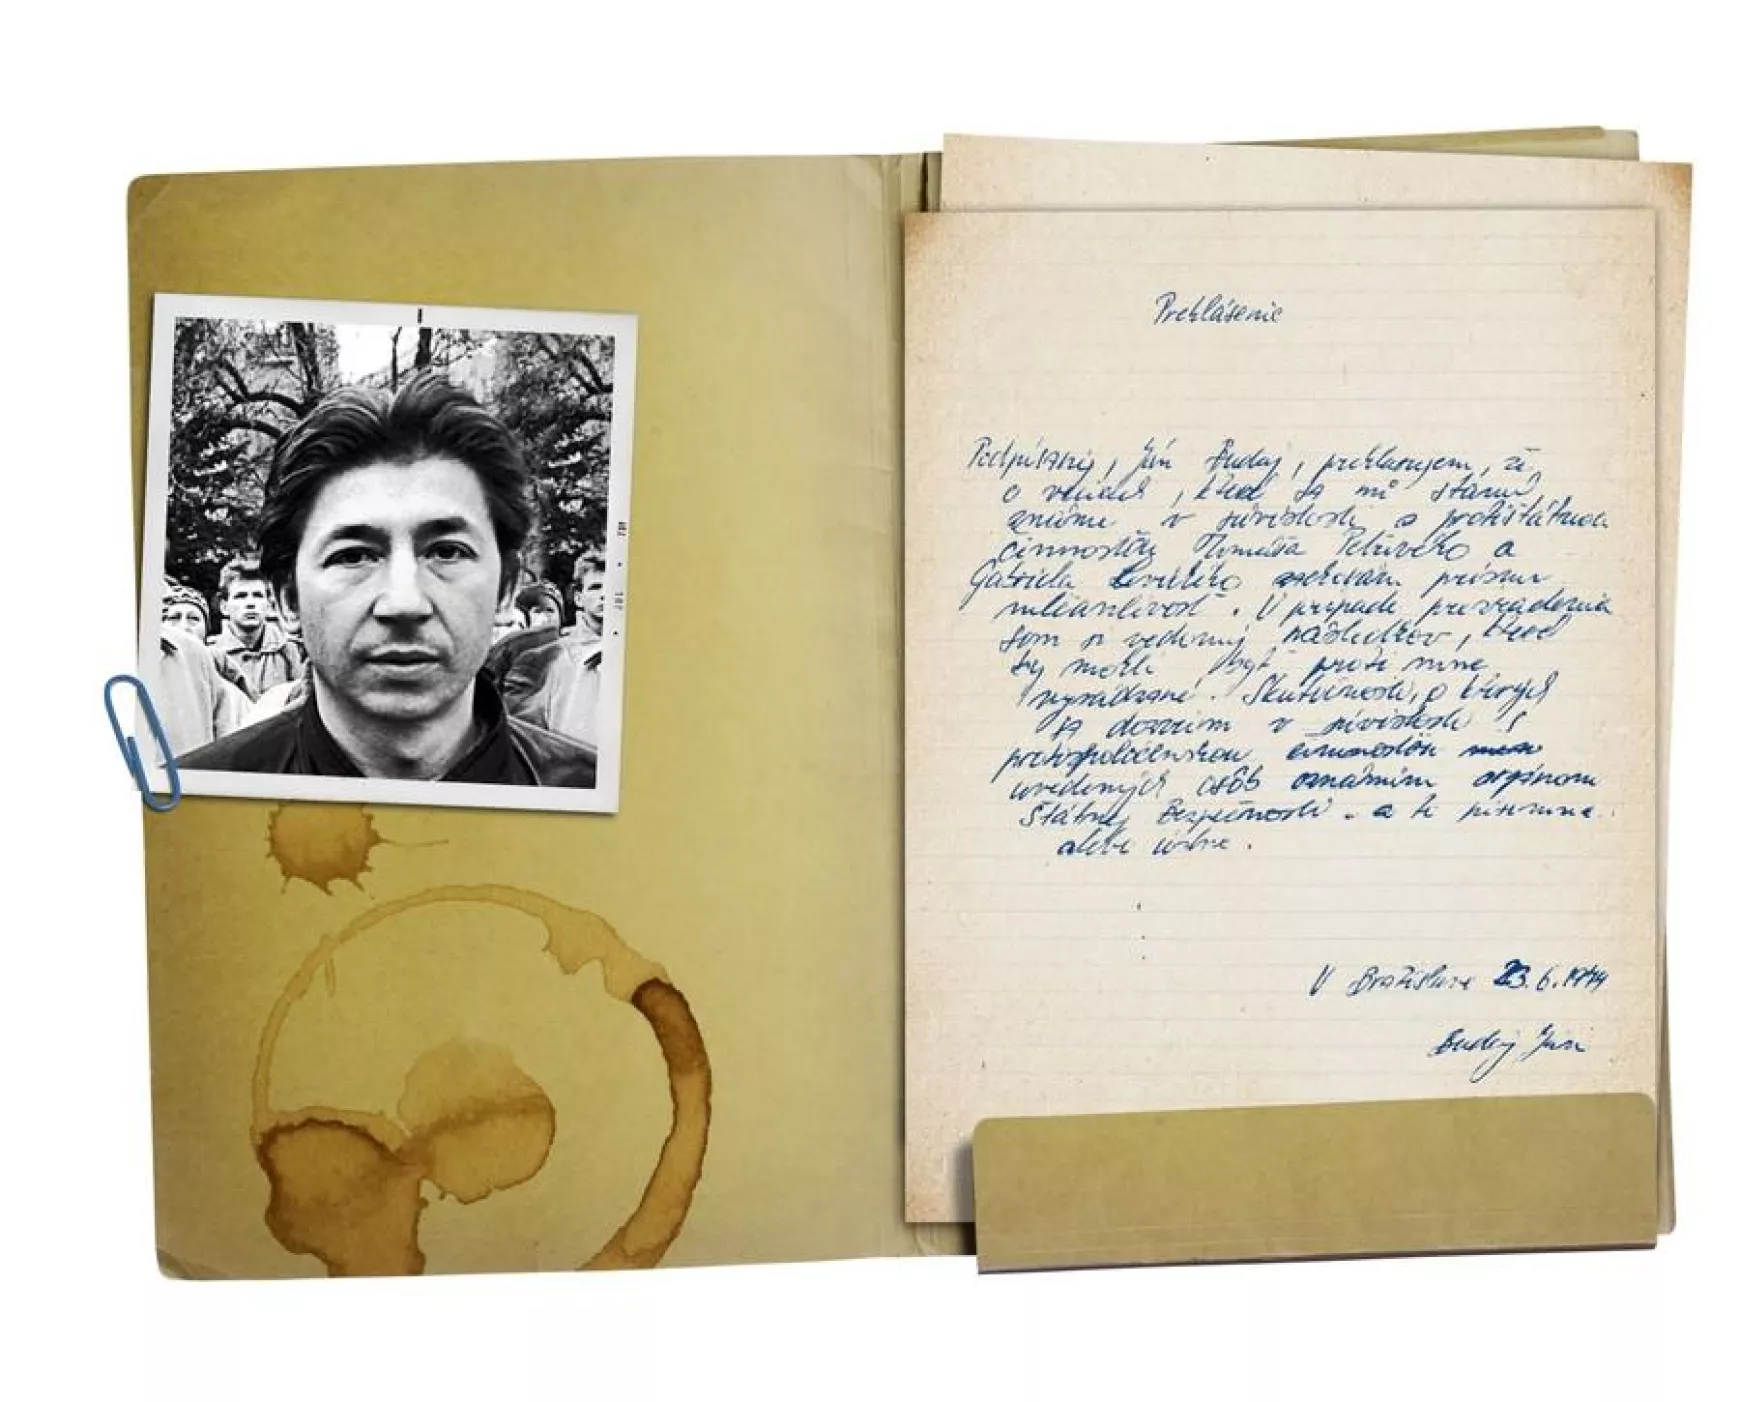 Prehlásenie
Podpísaný, Ján Budaj, prehlasujem, že
o veciach, ktoré sa mi stanú
známe v súvislosti s protištátnou
činnosťou Tomáša Petřivého a
Gabriela Levického zachovám prísnu
mlčanlivosť. V prípade prezradenia
som si vedomý následkov, ktoré
by mohli byť proti mne
vyvodzené. Skutočnosti, o ktorých
sa dozviem v súvislosti s
protispoločenskou činnosťou
uvedených osôb oznámim orgánom
Štátnej Bezpečnosti - a to písomne
alebo ústne.
V Bratislave 23.6.1979
Budaj Ján